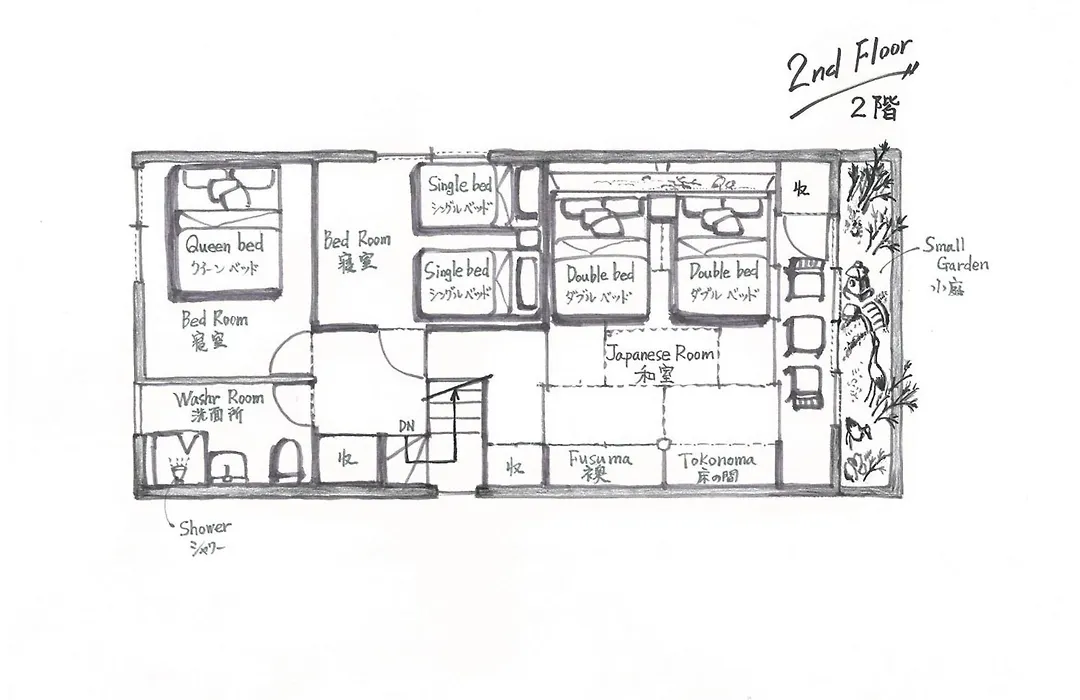 2nd Floor
2階
Queen bed
クイーンベッド
Bed Room
寝室
Single bed
シングルベッド
Bed Room
寝室
Single bed
シングルベッド
Double bed
ダブルベッド
Double bed
ダブルベッド
収
Small
Garden
小庭
Japanese Room
和室
Washr Room
洗面所
DN
収
収
Fusuma
襖
Tokonoma
床の間
Shower
シャワー